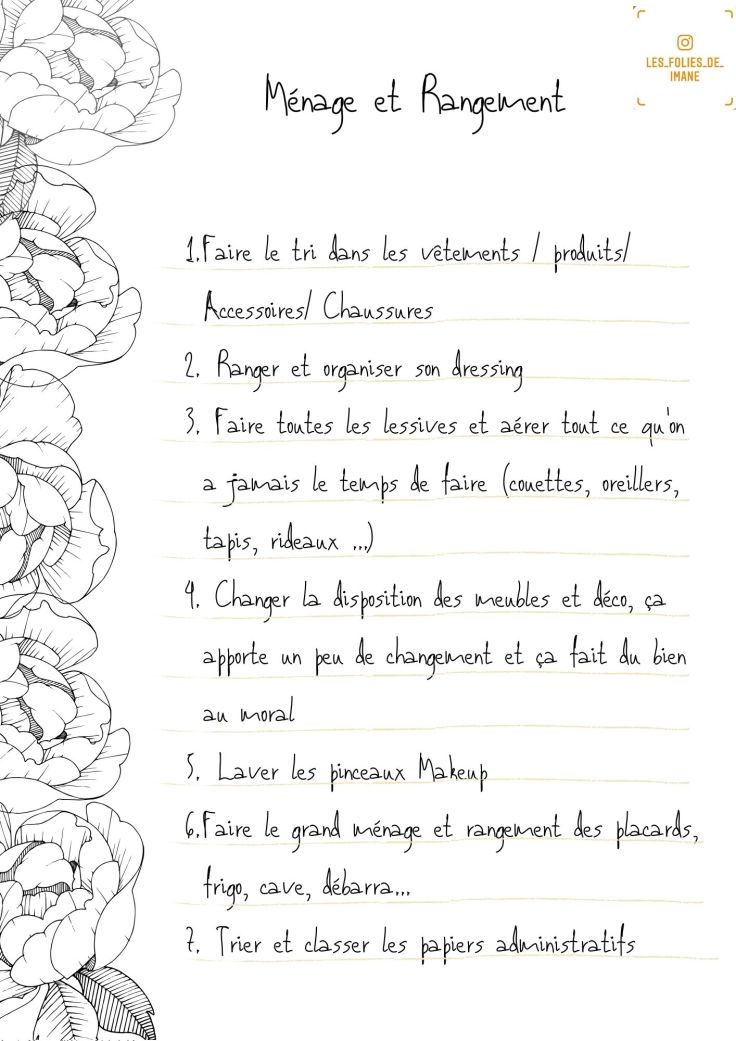 LES_FOLIES_DE_
IMANE
Ménage et Rangement
1.Faire le tri dans les vêtements / produits/
Accessoires/ Chaussures
2. Ranger et organiser son dressing
3. Faire toutes les lessives et aérer tout ce qu'on
a jamais le temps de faire (couettes, oreillers,
tapis, rideaux ...)
4. Changer la disposition des meubles et déco, ça
apporte un peu de changement et ça fait du bien
au moral
5. Laver les pinceaux Makeup
6.Faire le grand ménage et rangement des placards,
frigo, cave, débarra...
7. Trier et classer les papiers administratifs